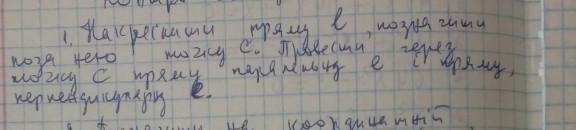 1. Накреслити пряму l, позначити
поза нею точку С. Провести через
точку С пряму паралельну l і пряму,
перпендикулярну l.
на координатній